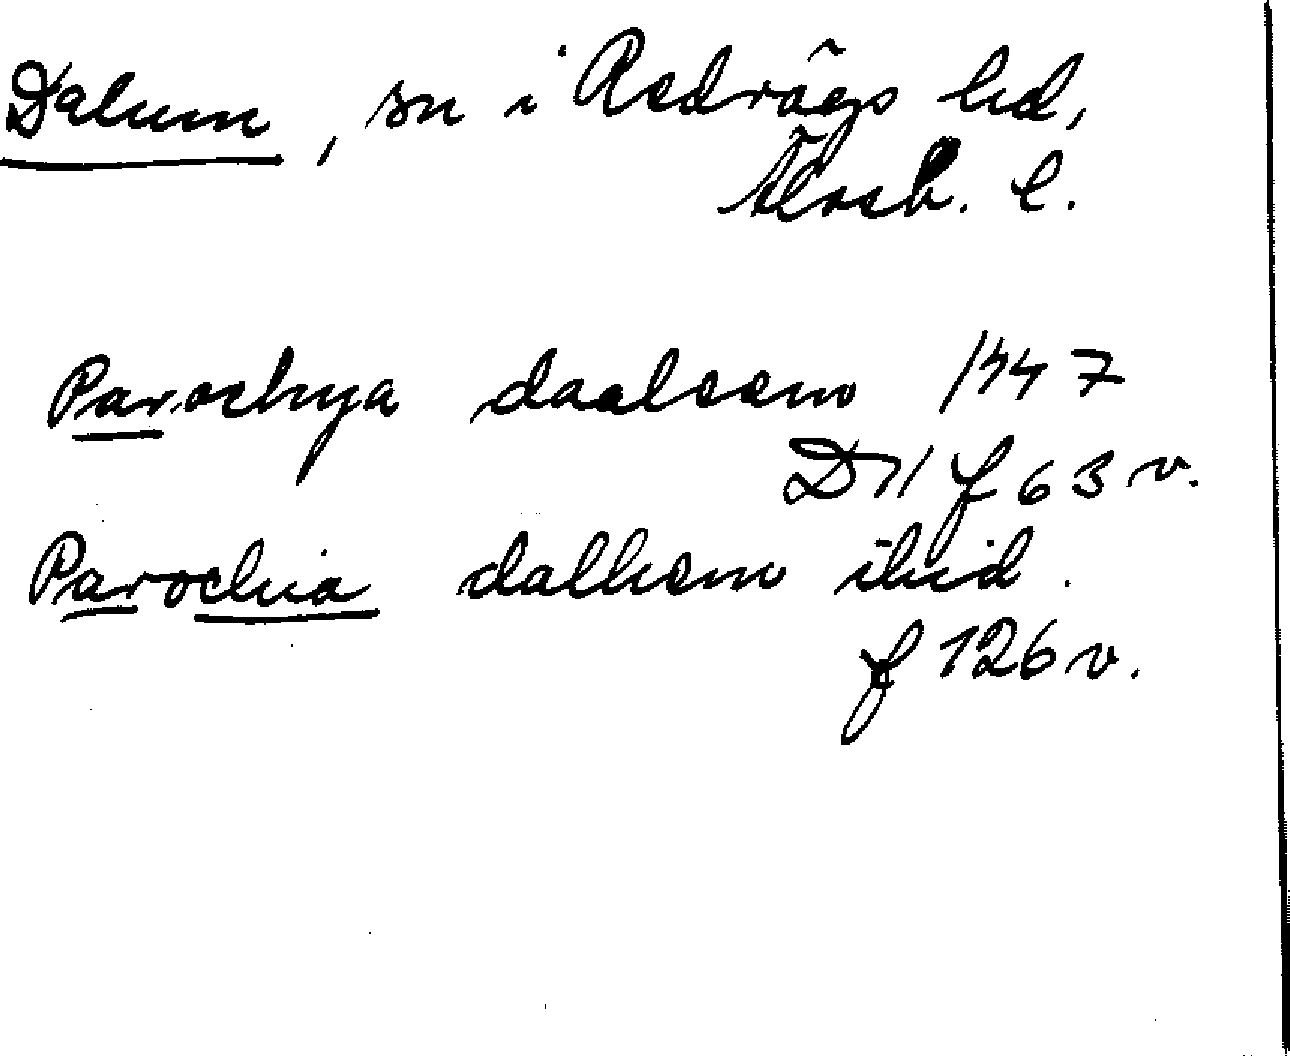 Dalum, sn i Redvägs hd,
Älvsb. l.
Parochya daalsem 1447
D 11 f 63 v.
Parochia dalhem ibid.
f 126 v.